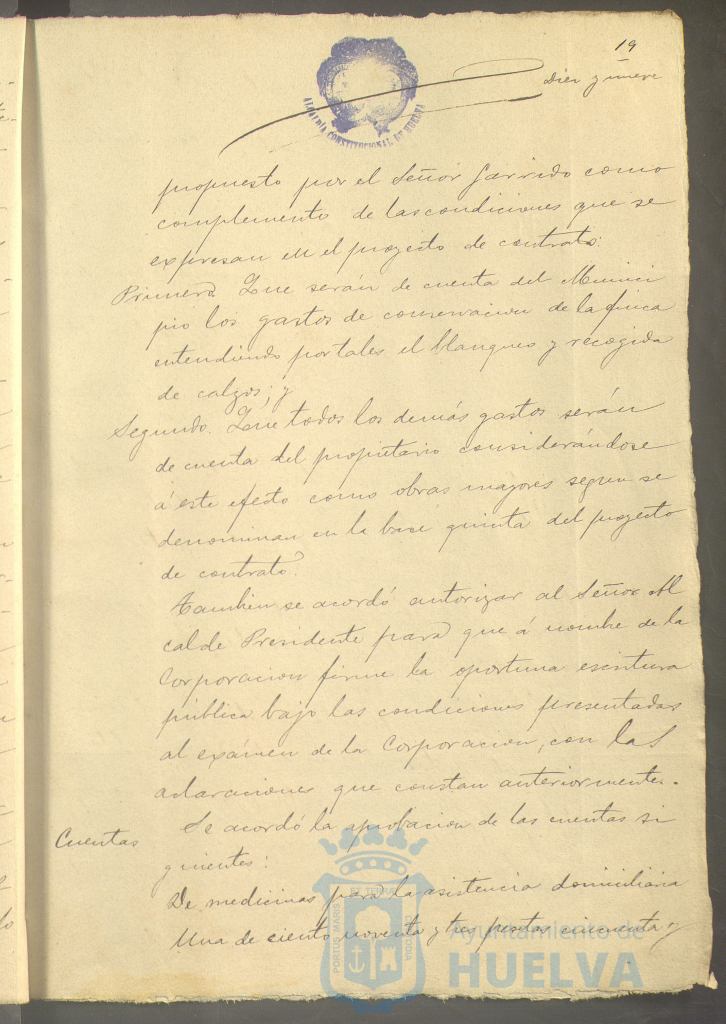 19
Diez y nueve
ALCALDÍA CONSTITUCIONAL DE HUELVA
propuesto por el Señor Garrido como
complemento de las condiciones que se
expresan en el proyecto de contrato:
Primero. Que serán de cuenta del Munici
pio los gastos de conservacion de la finca
entendiendo por tales el blanqueo y recogida
de calzos; y
Segundo. Que todos los demás gastos serán
de cuenta del propietario considerándose
á este efecto como obras mayores segun se
denominan en la base quinta del proyecto
de contrato.
Tambien se acordó autorizar al Señor Al
calde Presidente para que á nombre de la
Corporacion firme la oportuna escritura
pública bajo las condiciones presentadas
al exámen de la Corporacion, con las
aclaraciones que constan anteriormente.
Cuentas
Se acordó la aprobacion de las cuentas si
guientes:
De medicinas para la asistencia domiciliaria
Una de ciento noventa y tres pesetas cincuenta y
PORTUS MARIS ET TERRAE CUSTODIA
Ayuntamiento de
HUELVA